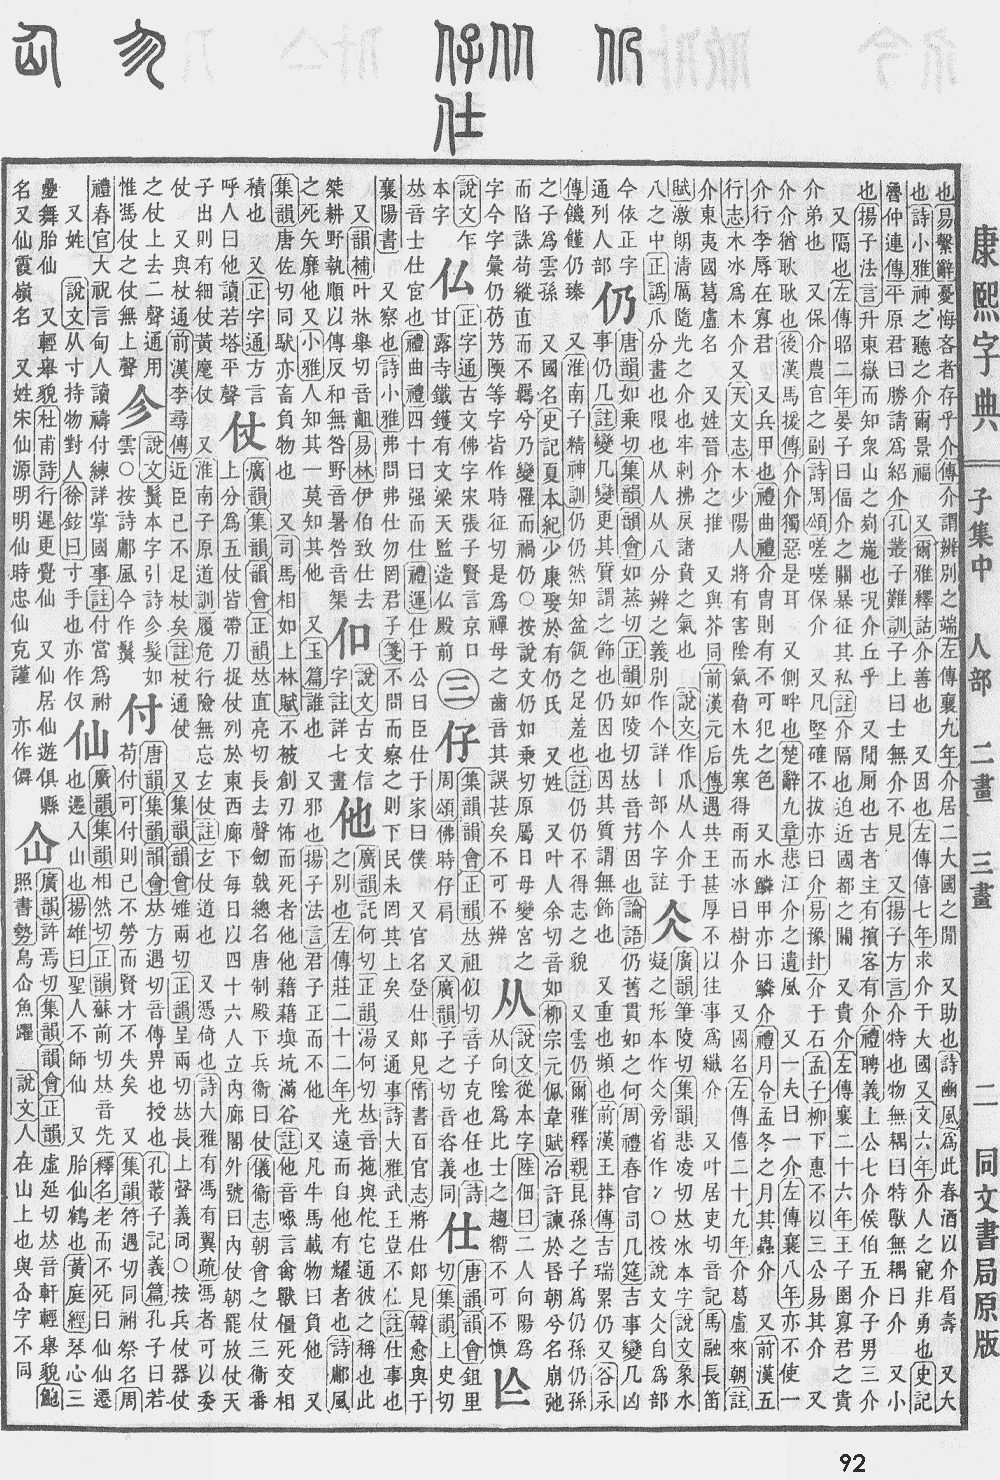 康熙字典 子集中 人部 二畫 三畫 二 同文書局原版
也易繫辭憂悔吝者存乎介傳介謂辨別之端左傳襄九年介居二大國之閒 又助也詩豳風爲此春酒以介眉壽 又大
也詩小雅神之聽之介爾景福 又爾雅釋詁介善也 又因也左傳僖七年求介于大國又文六年介人之寵非勇也史記
魯仲連傳平原君曰勝請爲紹介孔叢子雜訓子上曰士無介不見 又揚子方言介特也物無耦曰特獸無耦曰介 又小
也揚子法言升東嶽而知衆山之峛崺也況介丘乎 又閒厠也古者主有擯客有介禮聘義上公七介侯伯五介子男三介
又隔也左傳昭二年晏子曰偪介之關暴征其私註介隔也迫近國都之關 又貴介左傳襄二十六年王子圍寡君之貴
介弟也 又保介農官之副詩周頌嗟嗟保介 又凡堅確不拔亦曰介易豫卦介于石孟子柳下惠不以三公易其介 又
介介猶耿耿也後漢馬援傳介介獨惡是耳 又側畔也楚辭九章悲江介之遺風 又一夫曰一介左傳襄八年亦不使一
介行李辱在寡君 又兵甲也禮曲禮介冑則有不可犯之色 又水鱗甲亦曰鱗介禮月令孟冬之月其蟲介 又前漢五
行志木冰爲木介又天文志木少陽人將有害陰氣脅木先寒得雨而冰曰樹介 又國名左傳僖二十九年介葛盧來朝註
介東夷國葛盧名 又姓晉介之推 又與芥同前漢元后傳遇共王甚厚不以往事爲纖介 又叶居吏切音記馬融長笛
賦激朗清厲隨光之介也牢刺拂戾諸賁之氣也 說文作爪从人介于
八之中正譌爪分畫也限也从人从八分辨之義別作个詳丨部个字註
仌
廣韻筆陵切集韻悲凌切𠀤冰本字說文象水
凝之形本作仌㫄省作冫○按說文仌自爲部
今依正字
通列人部
仍
唐韻如乘切集韻韻會如蒸切正韻如陵切𠀤音艿因也論語仍舊貫如之何周禮春官司几筵吉事變几凶
事仍几註變几變更其質謂之飾也仍因也因其質謂無飾也 又重也頻也前漢王莽傳吉瑞累仍又谷永
傳饑饉仍臻 又淮南子精神訓仍仍然知盆瓴之足羞也註仍仍不得志之貌 又雲仍爾雅釋親昆孫之子爲仍孫仍孫
之子爲雲孫 又國名史記夏本紀少康娶於有仍氏 又姓 又叶人余切音如柳宗元佩韋賦冶訐諫於昏朝兮名崩弛
而陷誅苟縱直而不羈兮乃變罹而禍仍○按說文仍如乘切原屬日母變宮之
字今字彙仍艿芿陾等字皆作時征切是爲禪母之齒音其誤甚矣不可不辨
从
說文從本字陸佃曰二人向陽爲
从向陰爲比士之趨嚮不可不愼
亾
說文乍
本字
仏
正字通古文佛字宋張子賢言京口
甘露寺鐵鑊有文梁天監造仏殿前
三
仔
集韻韻會正韻𠀤祖似切音子克也任也詩
周頌佛時仔肩 又廣韻子之切音咨義同
仕
唐韻韻會鉏里
切集韻上史切
𠀤音士仕宦也禮曲禮四十曰强而仕禮運仕于公曰臣仕于家曰僕 又官名登仕郎見隋書百官志將仕郎見韓愈與于
襄陽書 又察也詩小雅弗問弗仕勿罔君子箋不問而察之則下民未罔其上矣 又通事詩大雅武王豈不仕註仕事也
又韻補叶牀舉切音齟易林伊伯致仕去
桀耕野執順以傳反和無咎野音暑咎音榘
㐰
說文古文信
字註詳七畫
他
廣韻託何切正韻湯何切𠀤音拖與佗它通彼之稱也此
之別也左傳莊二十二年光遠而自他有耀者也詩鄘風
之死矢靡他又小雅人知其一莫知其他 又玉篇誰也 又邪也揚子法言君子正而不他 又凡牛馬載物曰負他 又
集韻唐佐切同馱亦畜負物也 又司馬相如上林賦不被創刃怖而死者他他藉藉塡坑滿谷註他音㖡言禽獸僵死交相
積也 又正字通方言
呼人曰他讀若塔平聲
仗
廣韻集韻韻會正韻𠀤直亮切長去聲劒戟總名唐制殿下兵衞曰仗儀衞志朝會之仗三衞番
上分爲五仗皆帶刀捉仗列於東西廊下每日以四十六人立內廊閤外號曰內仗朝罷放仗天
子出則有細仗黃麾仗 又淮南子原道訓履危行險無忘玄仗註玄仗道也 又憑倚也詩大雅有馮有翼疏馮者可以委
仗 又與杖通前漢李尋傳近臣已不足杖矣註杖通仗 又集韻韻會雉兩切正韻呈兩切𠀤長上聲義同○按兵仗器仗
之仗上去二聲通用
惟馮仗之仗無上聲
㐱
說文鬒本字引詩㐱髮如
雲○按詩鄘風今作鬒
付
唐韻集韻韻會𠀤方遇切音傅畀也授也孔叢子記義篇孔子曰若
苟付可付則己不勞而賢才不失矣 又集韻符遇切同祔祭名周
禮春官大祝言甸人讀禱付練詳掌國事註付當爲祔
又姓 說文从寸持物對人徐鉉曰寸手也亦作仅
仙
廣韻集韻相然切正韻蘇前切𠀤音先 釋名老而不死曰仙仙遷
也遷入山也揚雄曰聖人不師仙 又胎仙鶴也黃庭經琴心三
疊舞胎仙 又輕舉貌杜甫詩行遲更覺仙 又仙居仙遊俱縣
名又仙霞嶺名 又姓宋仙源明明仙時忠仙克謹 亦作僊
仚
廣韻許焉切集韻韻會正韻虛延切𠀤音軒輕舉貌鮑
照書勢鳥仚魚躍 說文人在山上也與屳字不同
92